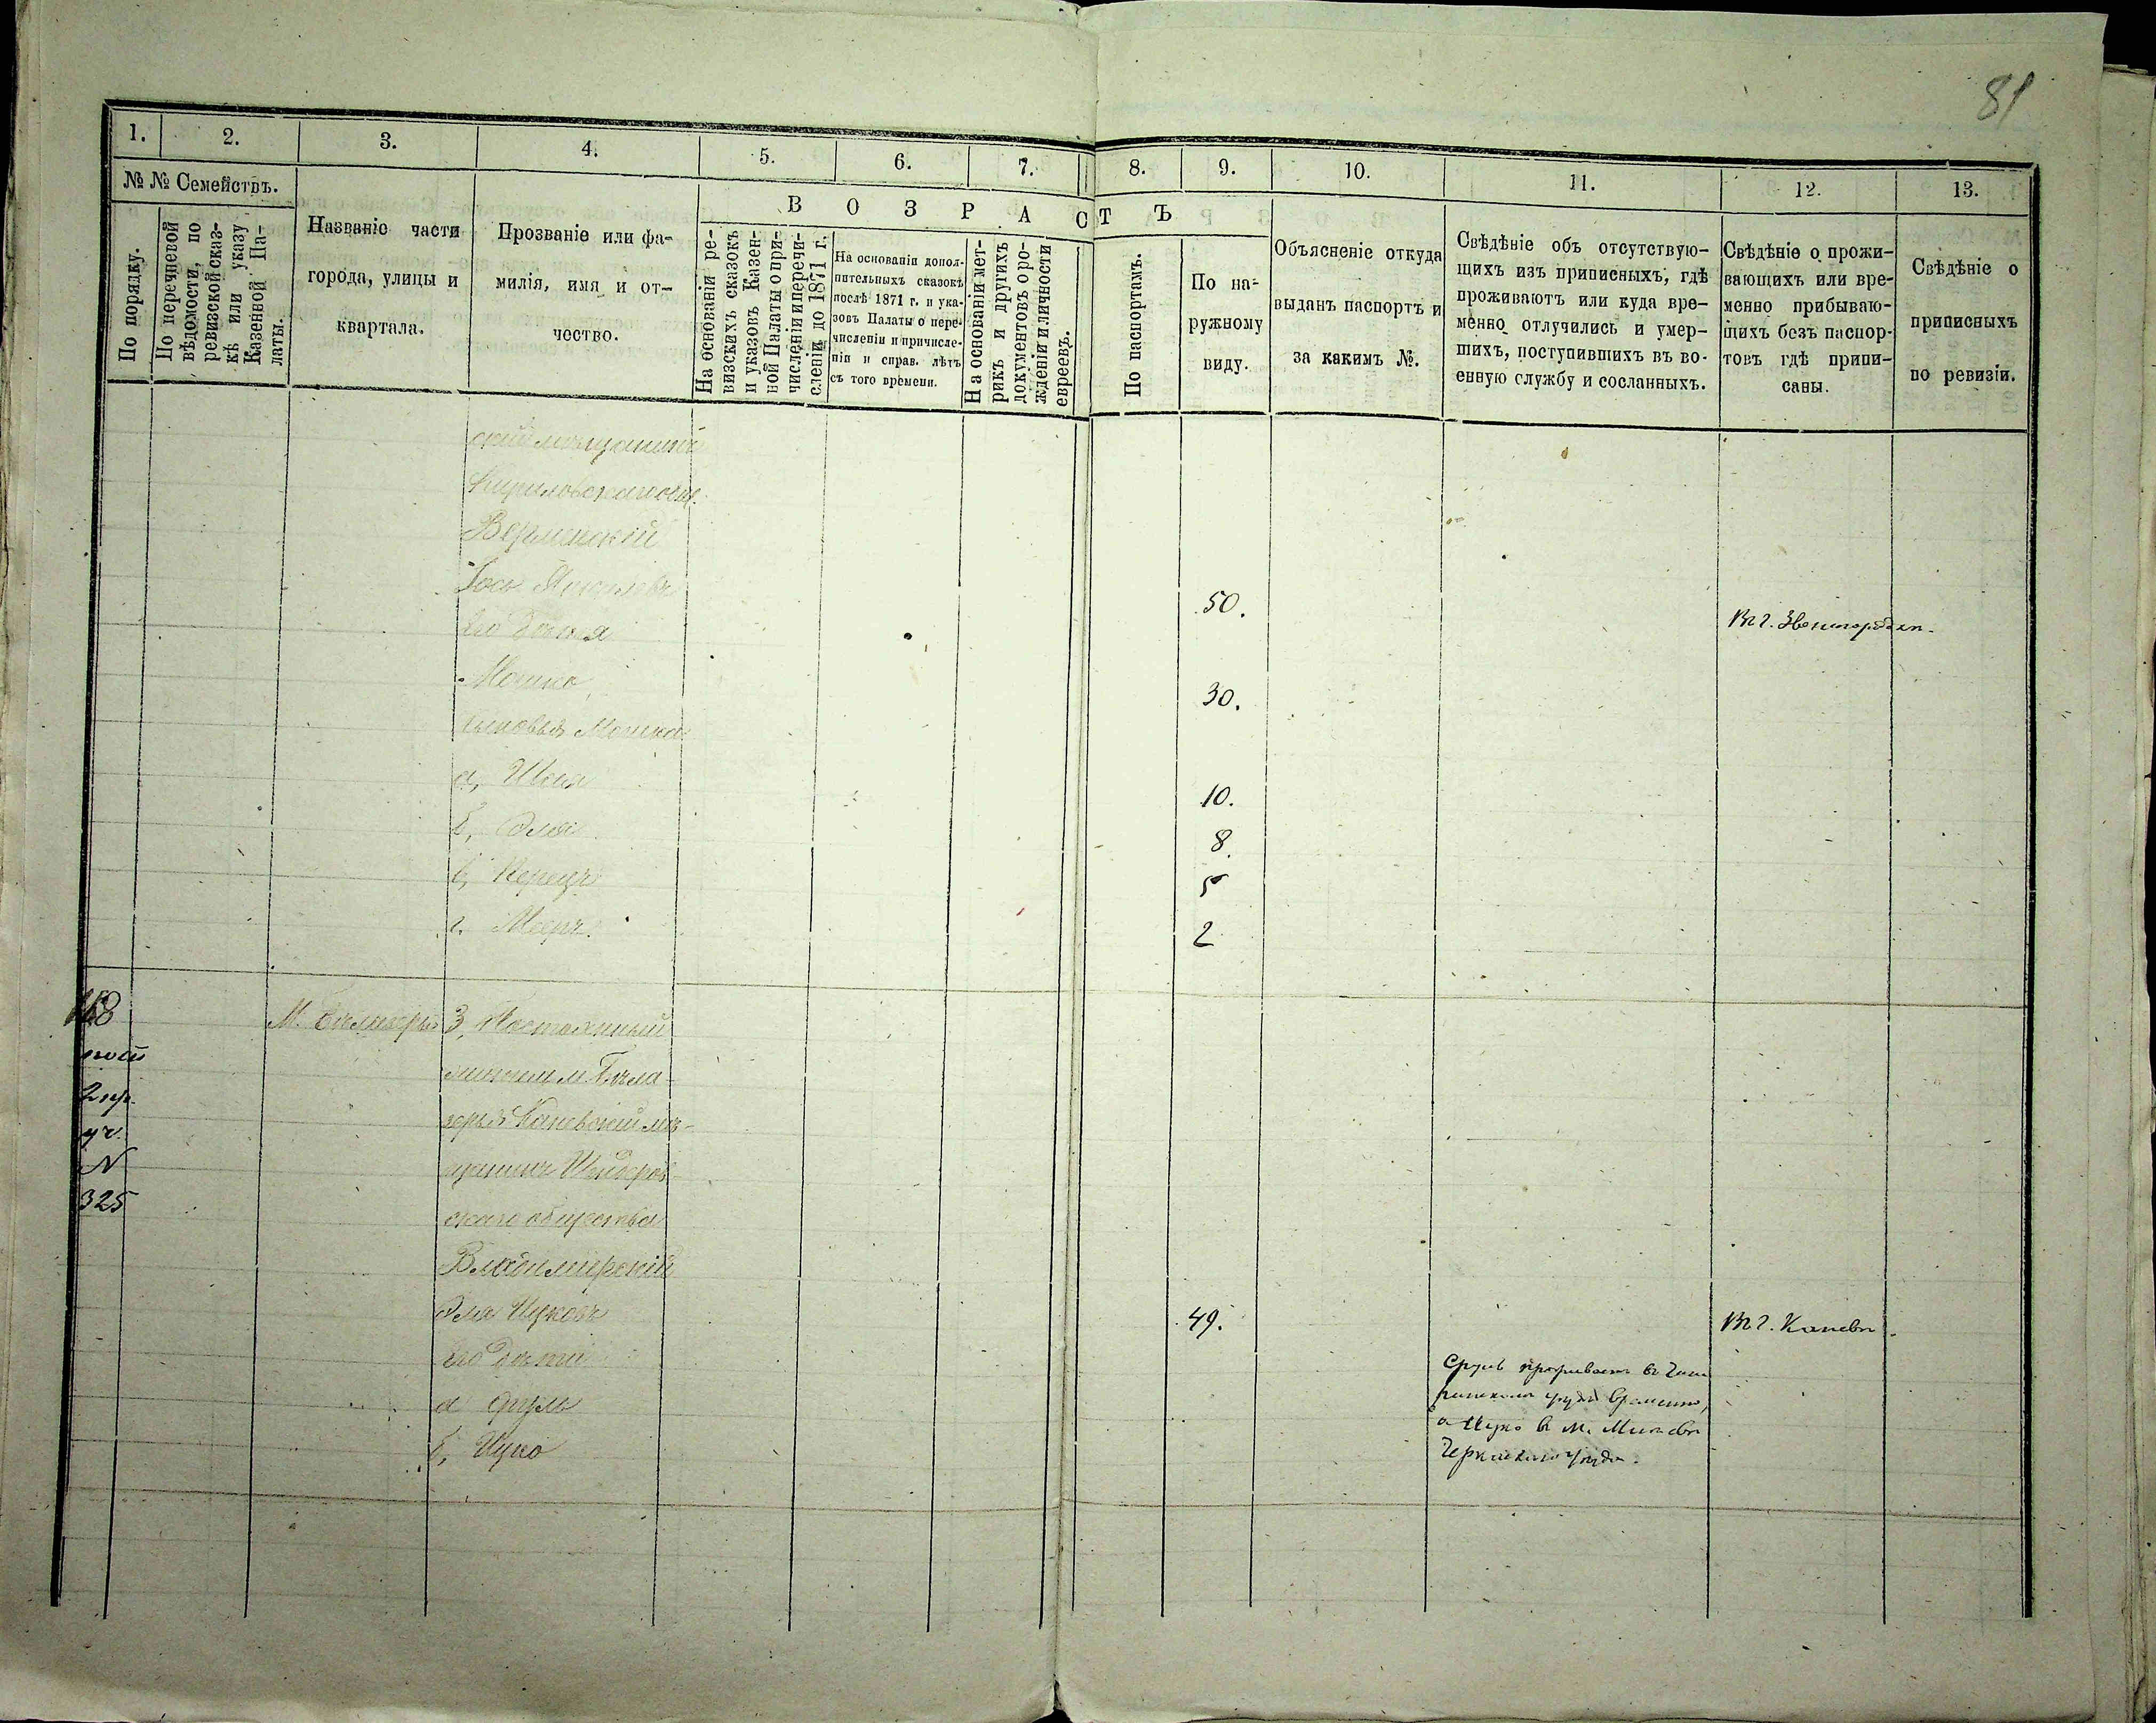 81
1. 2. 3. 4. 5. 6. 7. 8. 9. 10. 11. 12. 13.
№ № Семействъ.
По порядку.
По перечневой
вѣдомости, по
ревизской сказ-
кѣ или указу
Казенной Па-
латы.
Названіе части
города, улицы и
квартала.
Прозваніе или фа-
милія, имя и от-
чество.
ВОЗРАСТЪ
На основаніи ре-
визскихъ сказокъ
и указовъ Казен-
ной Палаты о при-
численіи и перечи-
сленіи до 1871 г.
На основаніи допол-
нительныхъ сказокъ
послѣ 1871 г. и ука-
зовъ Палаты о пере-
численіи и причисле-
ніи и справ. лѣтъ
съ того времени.
На основаніи мет-
рикъ и другихъ
документовъ о ро-
жденіи и личности
евреевъ.
По паспортамъ.
По на-
ружному
виду.
Объясненіе откуда
выданъ паспортъ и
за какимъ №.
Свѣдѣніе объ отсутствую-
щихъ изъ приписныхъ, гдѣ
проживаютъ или куда вре-
менно отлучились и умер-
шихъ, поступившихъ въ во-
енную службу и сосланныхъ.
Свѣдѣніе о прожи-
вающихъ или вре-
менно прибываю-
щихъ безъ паспор-
товъ гдѣ припи-
саны.
Свѣдѣніе о
приписныхъ
по ревизіи.
скій мѣщанинъ
Кириловскаго общ.
Верлинскій
Іось 50. Въ г. Звенигородкѣ.
Его дѣти
Мошко 30.
сыновья Мошка
а, Шая 10.
б, Эля 8.
в, Перецъ 5
г. Мееръ. 2
М. Бѣлозерье 3, Постоянный
житель м. Бѣло-
зерья Каневскій мѣ-
щанинъ Шендеров-
скаго общества
Владимирскій
Эля Ицковъ 49. Въ г. Каневѣ.
Его дѣти
а Сруль
б, Ицко
2 пр.
уч.
N
325
Сруль проживаетъ въ Чиги
ринскомъ уѣздѣ временно,
а Ицко въ м.
Черкаскаго уѣзда.